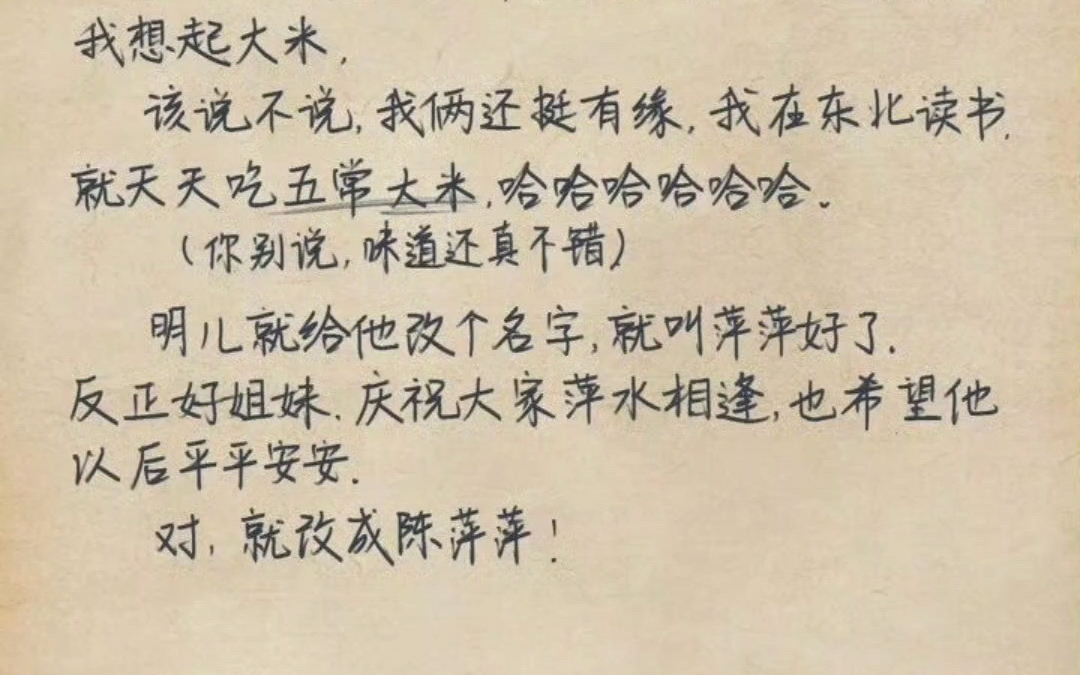 我想起大米,
该说不说,我俩还挺有缘,我在东北读书,
就天天吃五常大米,哈哈哈哈哈哈。
(你别说,味道还真不错)
明儿就给他改个名字,就叫萍萍好了.
反正好姐妹.庆祝大家萍水相逢,也希望他
以后平平安安.
对,就改成陈萍萍!